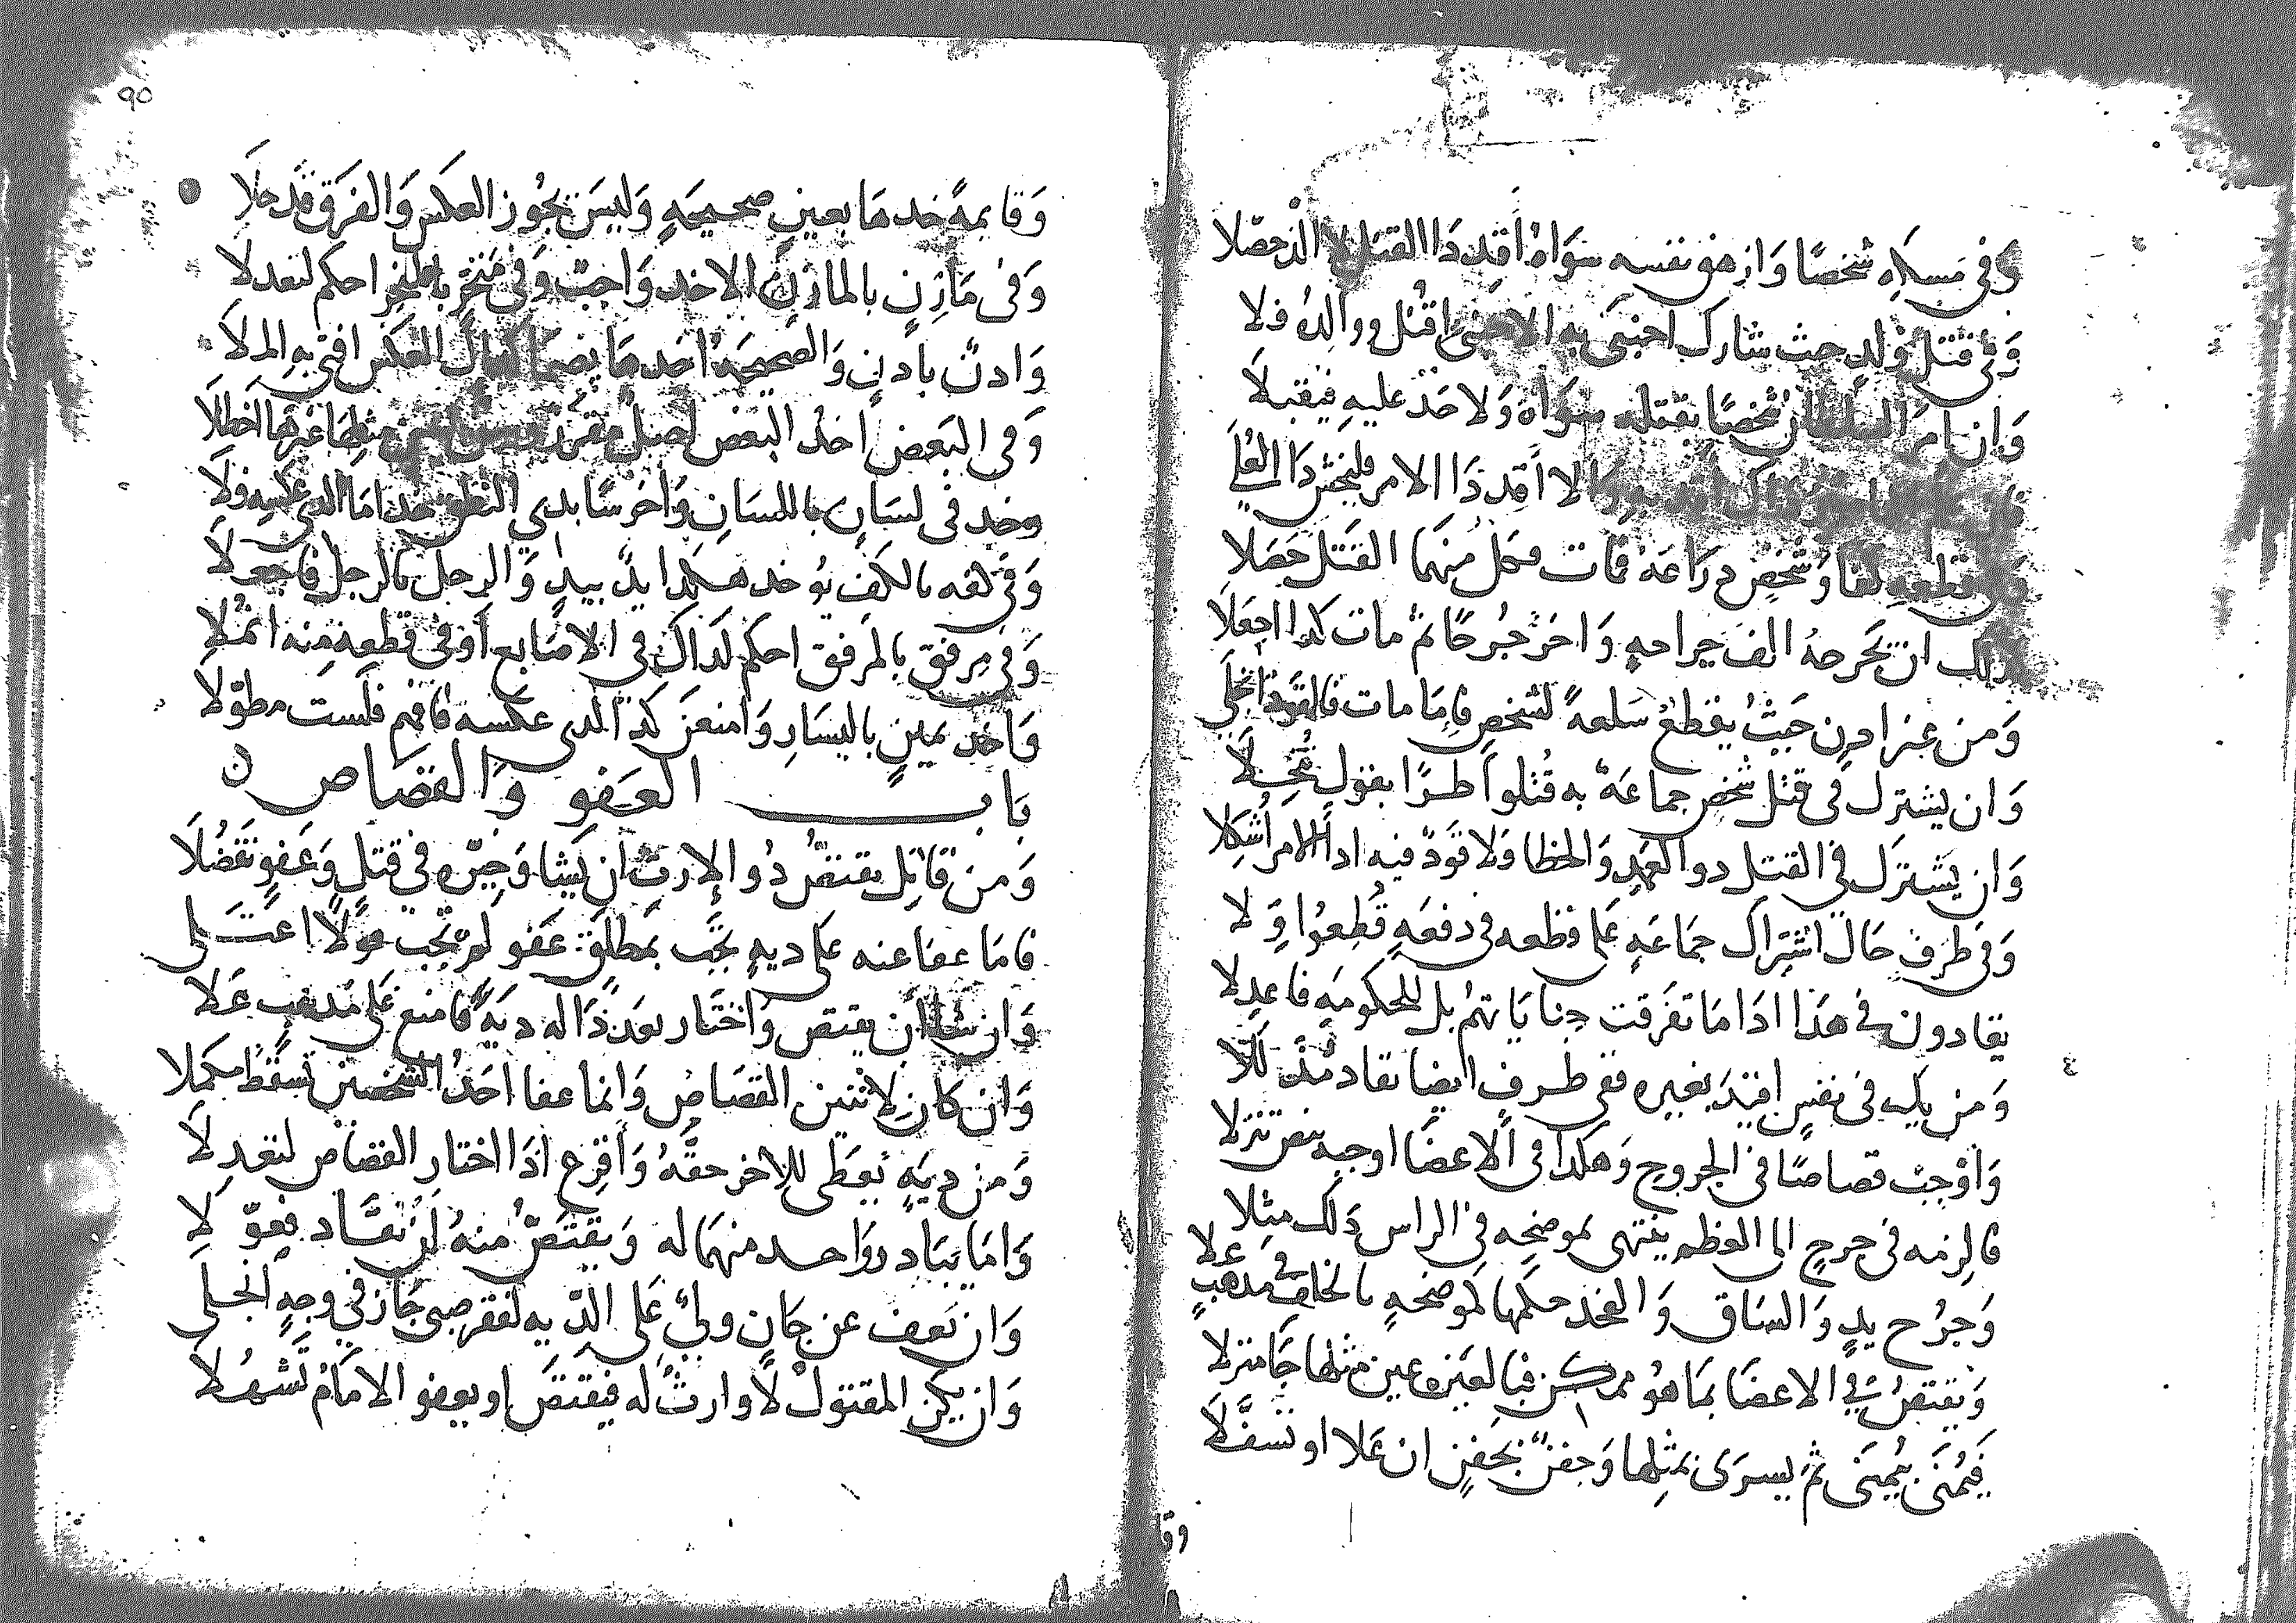 وَفي مسكه شخصًا وَازهق نفسه سوَاهُ أقِد ذَا القتل لا الذ حصّلا
وَفي قتل وَلدٍ حيث شارك اجنبى به الاجنبي اقتُل ووالدُه فلا
وَان امر السلطان شخصًا بقتله سوَاه وَلا حَدّ عليهِ فيقبلاَ
الا أقد ذَا الامر فليخش ذَا العُلَى
قطعه كفا وَشخص ذراعَهُ فمات فكل منهما القتل حَصَلا
كذلك ان يَجرحهُ الف جراحهٍ وَاخر جُرحًا ثم مات كذا اجعَلاَ
وَمن غير اذن حَيثُ يقطعُ سَلعهً لشخصٍ فامَا مات فالقود انجلى
وَان يشترك في قتل شخصٍ جماعَهٌ به قُتلوا طرًا بقول تَنخلاَ
وَان يَشترَك في القتل ذو العَمدِ وَالخطا وَلا قوَدٌ فيه اذا الامر أُشكلا
وَفي طرفٍ حَال اشتراك جمَاعَهٍ على قطعه في دفعَهٍ قُطِعُوا وِلا
يقادون في هذا اذا مَا تفرّقت جنايَا يتهم بل للحكومَهِ فاعدلا
وَمن يك في نفسٍ اقيدَ بغيره ففي طرفٍ ايضا يقاد مُذَللاَ
وَاوْجب قصاصًا في الجروح وَهكذا في الاعضَا اوجبه بنص تنزلا
فالزمه في جرح الى العظم ينتهى لموضحه في الراس ذلك مثلا
وَجرُح يدٍ وَالسَاق وَالفخذ حكمها كموضحهٍ بالخلف في مذهبٍ عَلا
وَيقتصُ في الاعضَا بمَا هُو ممكن فبالعَين عين مثلها جَا منزلا
فَيُمنَى بيُمنَى ثم يسرَى بمثلها وَجفنٌ بجَفنٍ ان عَلا او تسَفّلاَ
وقا
٩٥
وَقايمهً خذها بعينٍ صحيحهٍ وَليسَ يجُوز العكس وَالفرَق قد حلاَ
وَفى مَارِنٍ بالمارن الاخذ وَاجبٌ وَفي مَنخرٍ بالمنخر احكم لتعدلا
وَاذنٌ باذنٍ وَالصحيحَهُ اخذهَا بصمَا كذاك العَكس افتى به الملاَ
وَفى البَعض اخذ البَعض اصل مقرر
وخذ في لسَانٍ باللسَانِ وَاخرسًا بذى النطق خذ امَا الذي عكسه فلاَ
وَفي كفه بالكف يُوخذ هكذا يدٌ بيدٍ وَالرجل بالرجل فاجعَلاَ
وَفي مرفق بالمرفق احكم كذاك في الاصَابع أو في قطعه منه انمُلا
وَاخذ يمينٍ باليسَارِ وَامنعنَ كذا الذى عكسه فافهم فلست مطوّلاَ
بَاب العَفو وَالقصَاص
وَمن قاتلٍ يقتصُ ذُو الإرث ان يشا وَخيّره في قتلٍ وَعَفوٍ تَفضُلاَ
فامَا عفا عنه على ديهٍ تجب بمطلق عَفو لم تجب
وَان شا ان يقتص وَاختَار بعد ذا له ديهً فامنع على مذهب عَلا
وَان كان لاثنين القصَاص وَانما عفا احَدُ الشخصين تسقط مكملا
وَمن ديهٍ يعطَى للاخر حقّهُ وَأقرع اذَا اختار القصَاص لتعدلاَ
وَامَا يبَادر وَاحد منهمَا له وَيقتَصّ منهُ لم يقَاد
وَان يَعف عن جَانٍ وليٌ على الديه لفقر صبى جَاز في وجهٍ انجلى
وَان يكن المقتول لاَ وارثٌ له فيقتصَ او يعفو الامَامُ تسَهُلا